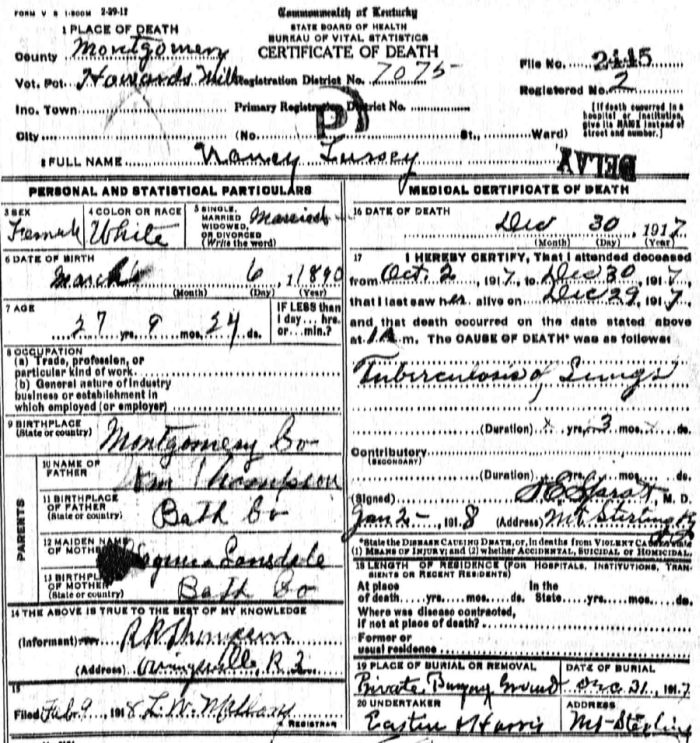 FORM V S 1-500M 2-29-17
Commonwealth of Kentucky
STATE BOARD OF HEALTH
BUREAU OF VITAL STATISTICS
CERTIFICATE OF DEATH
1 PLACE OF DEATH
County Montgomery
Vot. Pct. Howards Mill Registration District No. 7075
File No. 2445
Registered No. 2
Inc. Town Primary Registration District No.
P
City (No. St., Ward)
[If death occurred in a
hospital or institution,
give its NAME instead of
street and number.]
2 FULL NAME Nancy Lussey
DELAY
PERSONAL AND STATISTICAL PARTICULARS
3 SEX
Female
4 COLOR OR RACE
White
5 SINGLE,
MARRIED
WIDOWED,
OR DIVORCED
(Write the word)
Married
6 DATE OF BIRTH
March 6, 1890
(Month) (Day) (Year)
7 AGE
27 yrs. 9 mos. 24 ds.
IF LESS than
1 day... hrs.
or... min.?
8 OCCUPATION
(a) Trade, profession, or
particular kind of work
(b) General nature of industry
business or establishment in
which employed (or employer)
9 BIRTHPLACE
(State or country)
Montgomery Co
PARENTS
10 NAME OF
FATHER
Wm Thompson
11 BIRTHPLACE
OF FATHER
(State or country)
Bath Co
12 MAIDEN NAME
OF MOTHER
Lansdale
13 BIRTHPLACE
OF MOTHER
(State or country)
Bath Co
14 THE ABOVE IS TRUE TO THE BEST OF MY KNOWLEDGE
(Informant) R R Thompson
(Address) Owingsville, R 2
15
Filed Feb. 9 1918 L. W.
REGISTRAR
MEDICAL CERTIFICATE OF DEATH
16 DATE OF DEATH
Dec 30, 1917
(Month) (Day) (Year)
17 I HEREBY CERTIFY, That I attended deceased
from Oct. 2 1917, to Dec 30 1917,
that I last saw her alive on Dec 29, 1917
and that death occurred on the date stated above
at 1 A m. The CAUSE OF DEATH* was as follows:
Tuberculosis of Lungs
(Duration) x yrs. 3 mos. x ds.
Contributory
(SECONDARY)
(Duration) yrs. mos. ds.
(Signed) M. D.
Jan 2- 1918 (Address) Mt Sterling Ky
*State the DISEASE CAUSING DEATH, or, in deaths from VIOLENT CAUSES, state
(1) MEANS OF INJURY; and (2) whether ACCIDENTAL, SUICIDAL OR HOMICIDAL.
18 LENGTH OF RESIDENCE (FOR HOSPITALS, INSTITUTIONS, TRAN-
SIENTS OR RECENT RESIDENTS)
At place In the
of death yrs. mos. ds. State yrs. mos. ds.
Where was disease contracted,
if not at place of death?
Former or
usual residence
19 PLACE OF BURIAL OR REMOVAL
Private Burying Ground
DATE OF BURIAL
Dec. 31, 1917
20 UNDERTAKER
Eastin & Harris
ADDRESS
Mt-Sterling